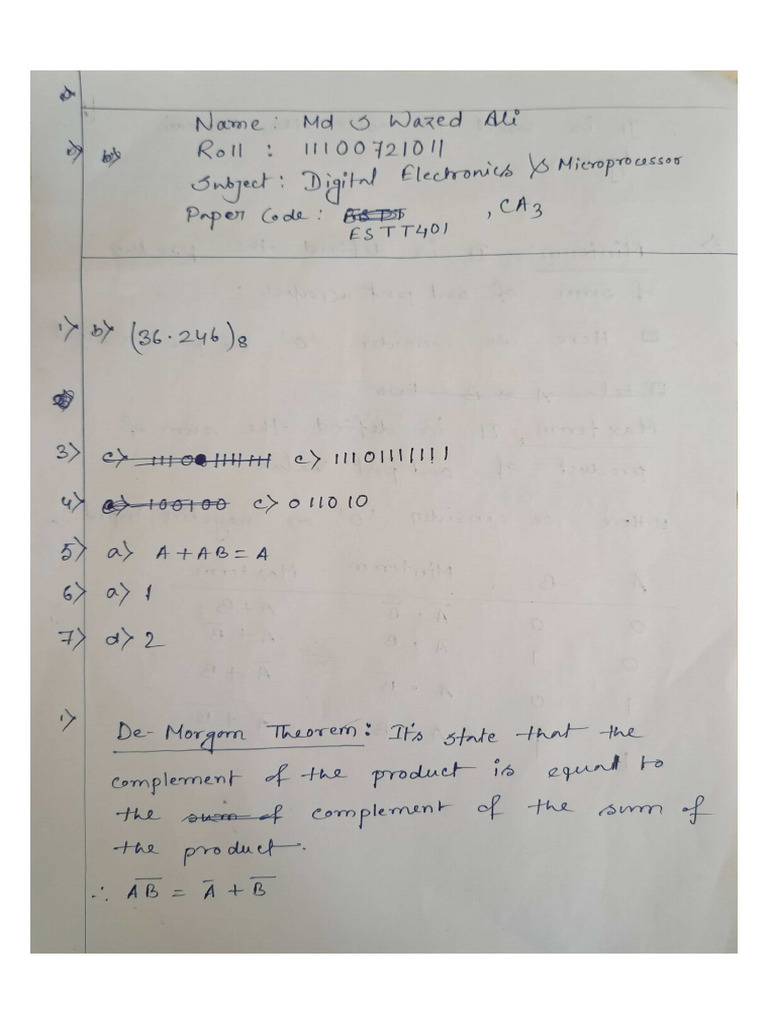 Name : Md S Wazed Ali
Roll : 11100721011
Subject : Digital Electronics & Microprocessor
Paper Code : , CA3
ESTT401
1) b) (36.246)8
3) c) 11100111111 c) 11101111111
4) c) 100100 c) 011010
5) a) A + AB = A
6) a) 1
7) d) 2
1) De-Morgom Theorem : It's state that the
complement of the product is equal to
the sum of complement of the sum of
the product.
∴ A̅B̅ = A̅ + B̅